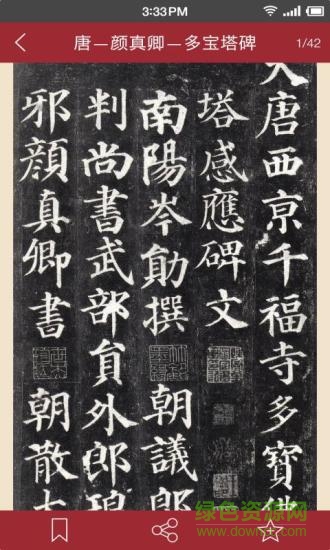 3:33PM
唐—颜真卿—多宝塔碑
1/42
大唐西京千福寺多寶佛
塔感應碑文
南陽岑勛撰 朝議郎
判尚書武部員外郎琅
邪顏真卿書 朝散大
绿色资源网
www.downcc.com